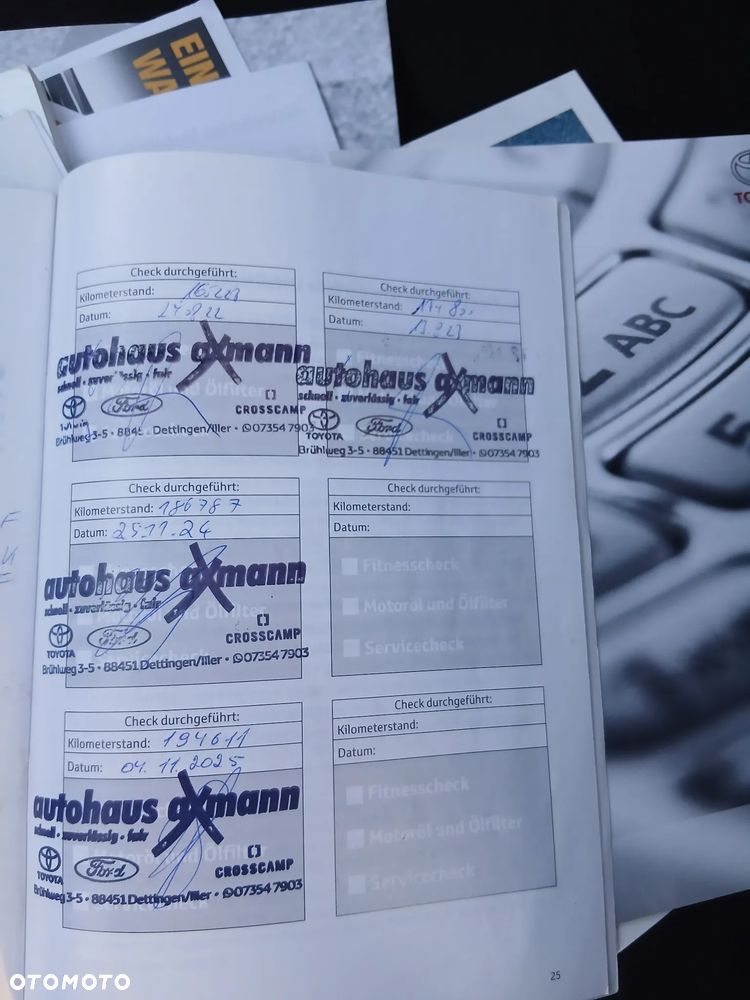 EIN
WA
TO
ABC
Check durchgeführt:
Kilometerstand:
Datum:
autohaus axmann
schnell • zuverlässig • fair
Ford
CROSSCAMP
Brühlweg 3-5 • 8845 Dettingen/Iller • 07354 7903
Check durchgeführt:
Kilometerstand:
Datum:
autohaus axmann
schnell • zuverlässig • fair
TOYOTA Ford CROSSCAMP
Brühlweg 3-5 • 88451 Dettingen/Iller • 07354 7903
Check durchgeführt:
Kilometerstand: 186787
Datum: 25.11.24
autohaus axmann
schnell • zuverlässig • fair
TOYOTA Ford CROSSCAMP
Brühlweg 3-5 • 88451 Dettingen/Iller • 07354 7903
Check durchgeführt:
Kilometerstand:
Datum:
Fitnesscheck
Motoröl und Ölfilter
Servicecheck
Check durchgeführt:
Kilometerstand: 194611
Datum: 04.11.2025
autohaus axmann
schnell • zuverlässig • fair
TOYOTA Ford CROSSCAMP
Brühlweg 3-5 • 88451 Dettingen/Iller • 07354 7903
Check durchgeführt:
Kilometerstand:
Datum:
Fitnesscheck
Motoröl und Ölfilter
Servicecheck
25
OTOMOTO